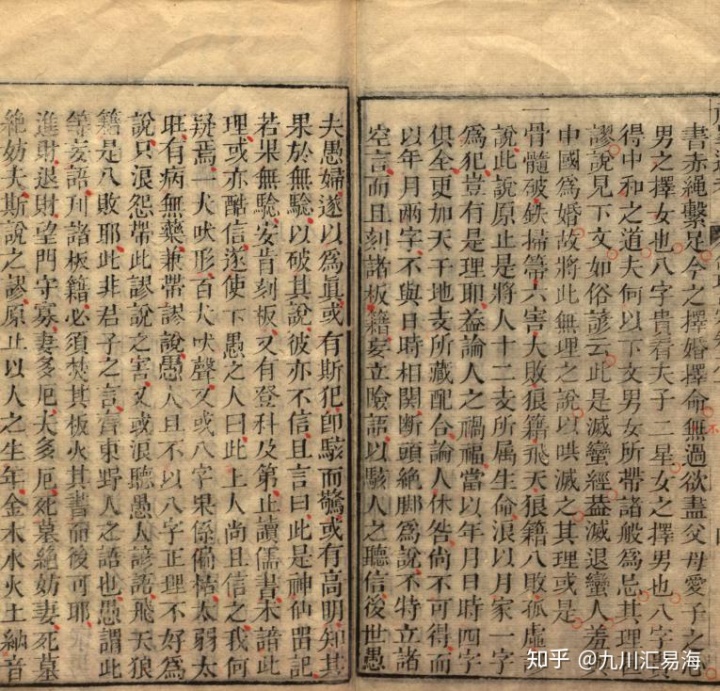 書赤繩繫足今之擇婚擇命無過欲盡父母愛子之心
男之擇女也八字貴看夫子二星女之擇男也八字貴
得中和之道夫何以下文男女所帶諸般為忌其理
謬說見下文如俗諺云此是滅蠻經葢滅退蠻人羞與
中國為婚故將此無理之說以哄滅之其理或是
一骨髓破鉄掃箒六害大敗狼籍飛天狼籍八敗孤虛
說此說原止是將人十二支所属生命浪以月家一字
為犯豈有是理耶葢論人之禍福當以年月日時四字
俱全更加天干地支所藏配合論人休咎尙不可得而
以年月兩字不與日時相関斷頭絶脚為說不特立諸
空言而且刻諸板籍妄立險語以駭人之聽信後世愚
夫愚婦遂以為眞或有斯犯卽駭而驚或有高明知其
果於無驗以破其說彼亦不信且言曰此是神仙畱記
若果無驗安肯刻板又有登科及第止讀儒書未諳此
理或亦酷信遂使下愚之人曰此上人尚且信之我何
疑焉一犬吠形百犬吠聲又或八字果係偏枯太弱太
旺有病無藥兼帶謬說愚人且不以八字正理不好為
說只浪怨帶此謬說之害又或浪聽愚人諺語飛天狼
籍是八敗耶此非君子之言齊東野人之語也愚謂此
等妄語刋諸板籍必須焚其板火其書而後可耶
進財退財望門守寡妻多厄夫多厄死墓絶妨妻死墓
絶妨夫斯說之謬原止以人之生年金木水火土納音
知乎 @九川汇易海